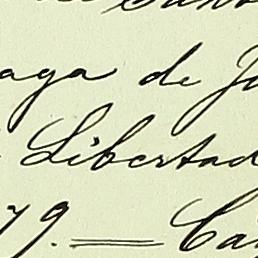 aga de Jo
Libertad
79. Ca